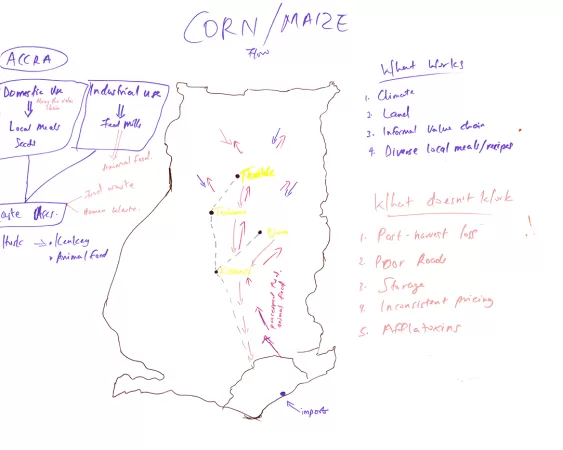 CORN/MAIZE
Flow
ACCRA
Domestic Use
Along the value
chain
Local Meals
Seeds
Industrial use
Feed Mills
Animal feed.
food waste
Human Waste.
Husk → • Kenkey
• Animal Feed
processed food.
animal feed.
imports
What Works
1. Climate
2. Land
3. Informal value chain
4. Diverse local meals/recipes
What doesn't work
1. Post-harvest loss
2. Poor Roads
3. Storage
4. Inconsistent pricing
5. Afflatoxins
!